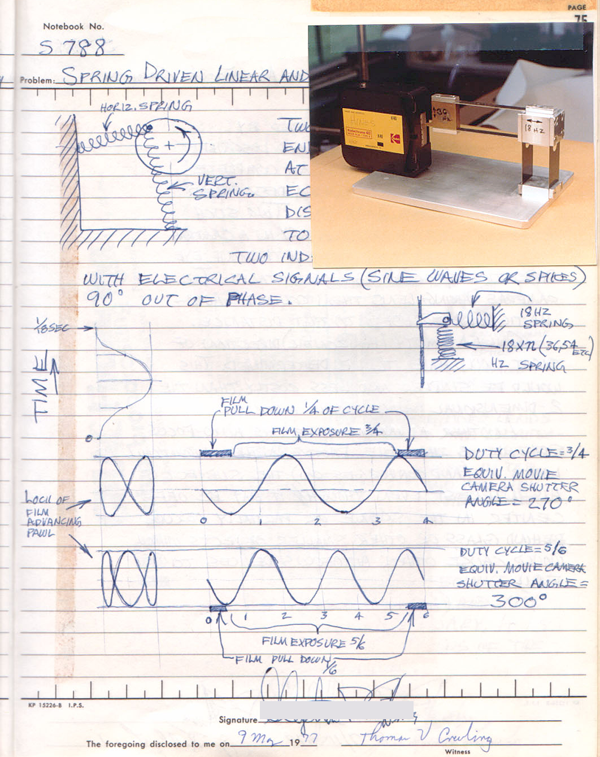 PAGE
75
Notebook No.
S 788
Problem: SPRING DRIVEN LINEAR AND
HORIZ. SPRING
VERT.
SPRING
AT
EC
DIS
TO
TWO IND
18 HZ
WITH ELECTRICAL SIGNALS (SINE WAVES OR SPIKES)
90° OUT OF PHASE.
1/18 SEC
TIME
0
18 HZ
SPRING
18 X n (36, 54 ETC)
HZ SPRING
FILM
PULL DOWN 1/4 OF CYCLE
FILM EXPOSURE 3/4
DUTY CYCLE = 3/4
EQUIV. MOVIE
CAMERA SHUTTER
ANGLE = 270°
0 1 2 3 4
LOCII OF
FILM
ADVANCING
PAWL
DUTY CYCLE = 5/6
EQUIV. MOVIE CAMERA
SHUTTER ANGLE =
300°
0 1 2 3 4 5 6
FILM EXPOSURE 5/6
FILM PULL DOWN
1/6
KP 15226-B I.P.S.
Signature
The foregoing disclosed to me on 9 May 1977 Thomas V Cowling
Witness